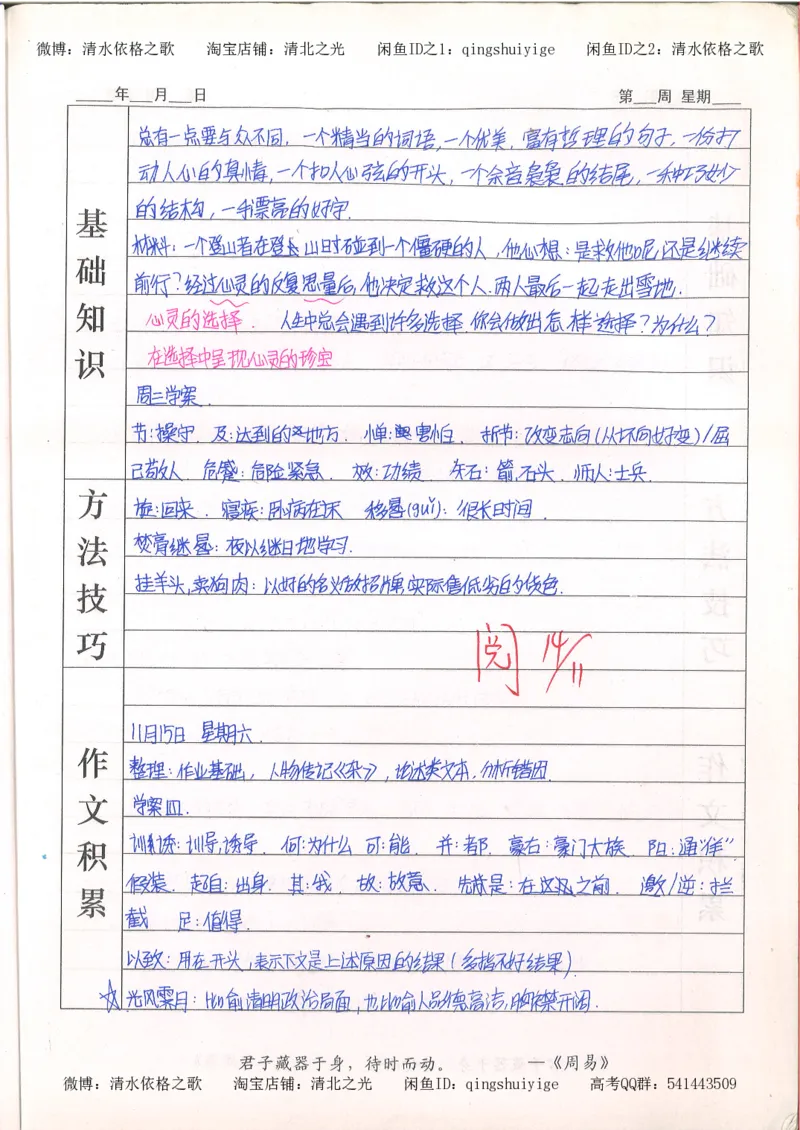 微博：清水依格之歌 淘宝店铺：清北之光 闲鱼ID之1：qingshuiyige 闲鱼ID之2：清水依格之歌
年 月 日 第 周 星期
基础知识
总有一点要与众不同，一个精当的词语，一个优美，富有哲理的句子，一份打
动人心的真情，一个扣人心弦的开头，一个余音袅袅的结尾，一种巧妙
的结构，一手漂亮的好字.
材料：一个登山者在登山时碰到一个僵硬的人，他心想：是救他呢还是继续
前行？经过心灵的反复思量后，他决定救这个人.两人最后一起走出雪地.
心灵的选择. 人生中总会遇到许多选择.你会做出怎样选择？为什么？
在选择中呈现心灵的珍宝
周三学案.
节：操守. 及：达到的地方. 惮：害怕. 折节：改变志向（从坏向好变）/屈
己敬人. 危蹙：危险紧急. 效：功绩. 矢石：箭，石头. 师人：士兵.
方法技巧
旋：回来. 寝疾：卧病在床 移晷(guǐ)：很长时间.
焚膏继晷：夜以继日地学习.
挂羊头，卖狗肉：以好的名义做招牌，实际售低劣的货色.
阅 14/11
作文积累
11月15日 星期六.
整理：作业基础， 人物传记《杂》，论述类文本，分析错因.
学案四.
训诱：训导，诱导. 何：为什么 可：能. 并：都. 豪右：豪门大族. 阳：通“佯”
假装. 起自：出身. 其：我. 故：故意. 先是：在这之前. 邀/逆：拦
截 足：值得.
以致：用在开头，表示下文是上述原因的结果（多指不好结果）.
☆光风霁月：比喻清明政治局面，也比喻人品德高洁，胸襟开阔.
君子藏器于身，待时而动。 —《周易》
微博：清水依格之歌 淘宝店铺：清北之光 闲鱼ID：qingshuiyige 高考QQ群：541443509